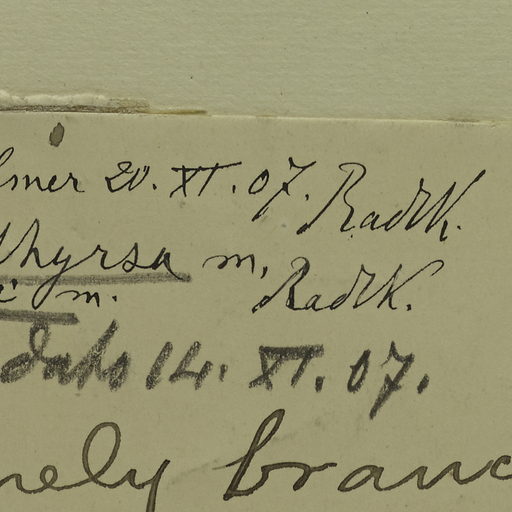 lmer 20. XI. 07. Radlk.
thyrsa m, Radlk.
i m.
Idaho 14. XI. 07.
nely branc